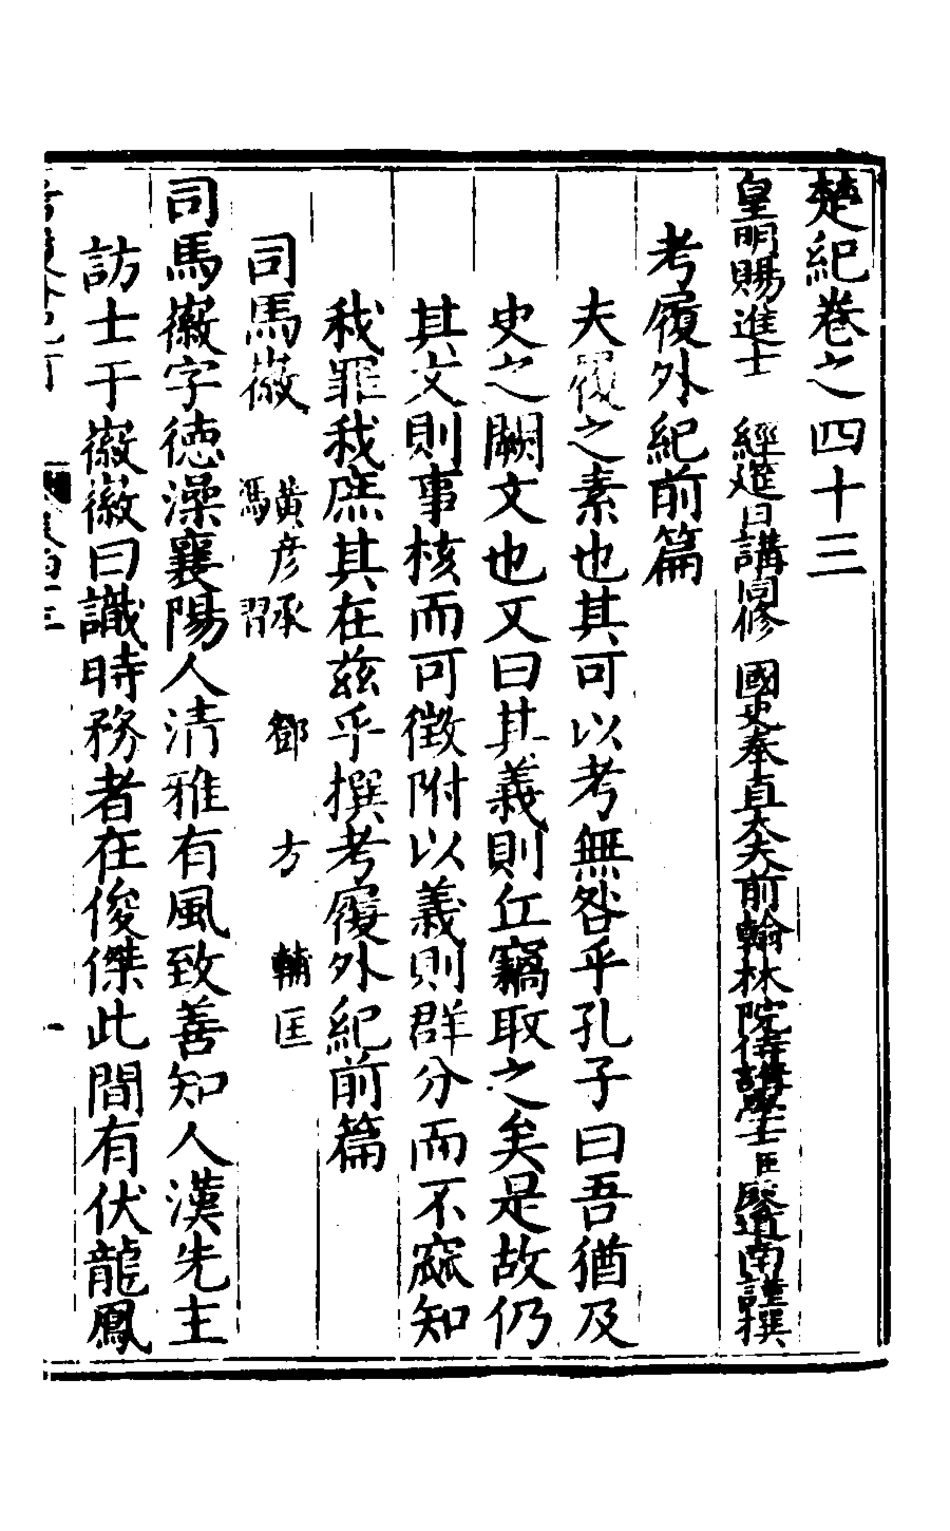 楚紀卷之四十三
皇明賜進士 經筵日講同修 國史奉直大夫前翰林院侍講學士臣廖道南謹撰
考履外紀前篇
夫履之素也其可以考無咎乎孔子曰吾猶及
史之闕文也又曰其義則丘竊取之矣是故仍
其文則事核而可徵附以義則群分而不窳知
我罪我庶其在茲乎撰考履外紀前篇
司馬徽 黃彥承 鄧方 輔匡
馮習
司馬徽字德澡襄陽人清雅有風致善知人漢先主
訪士于徽徽曰識時務者在俊傑此間有伏龍鳳